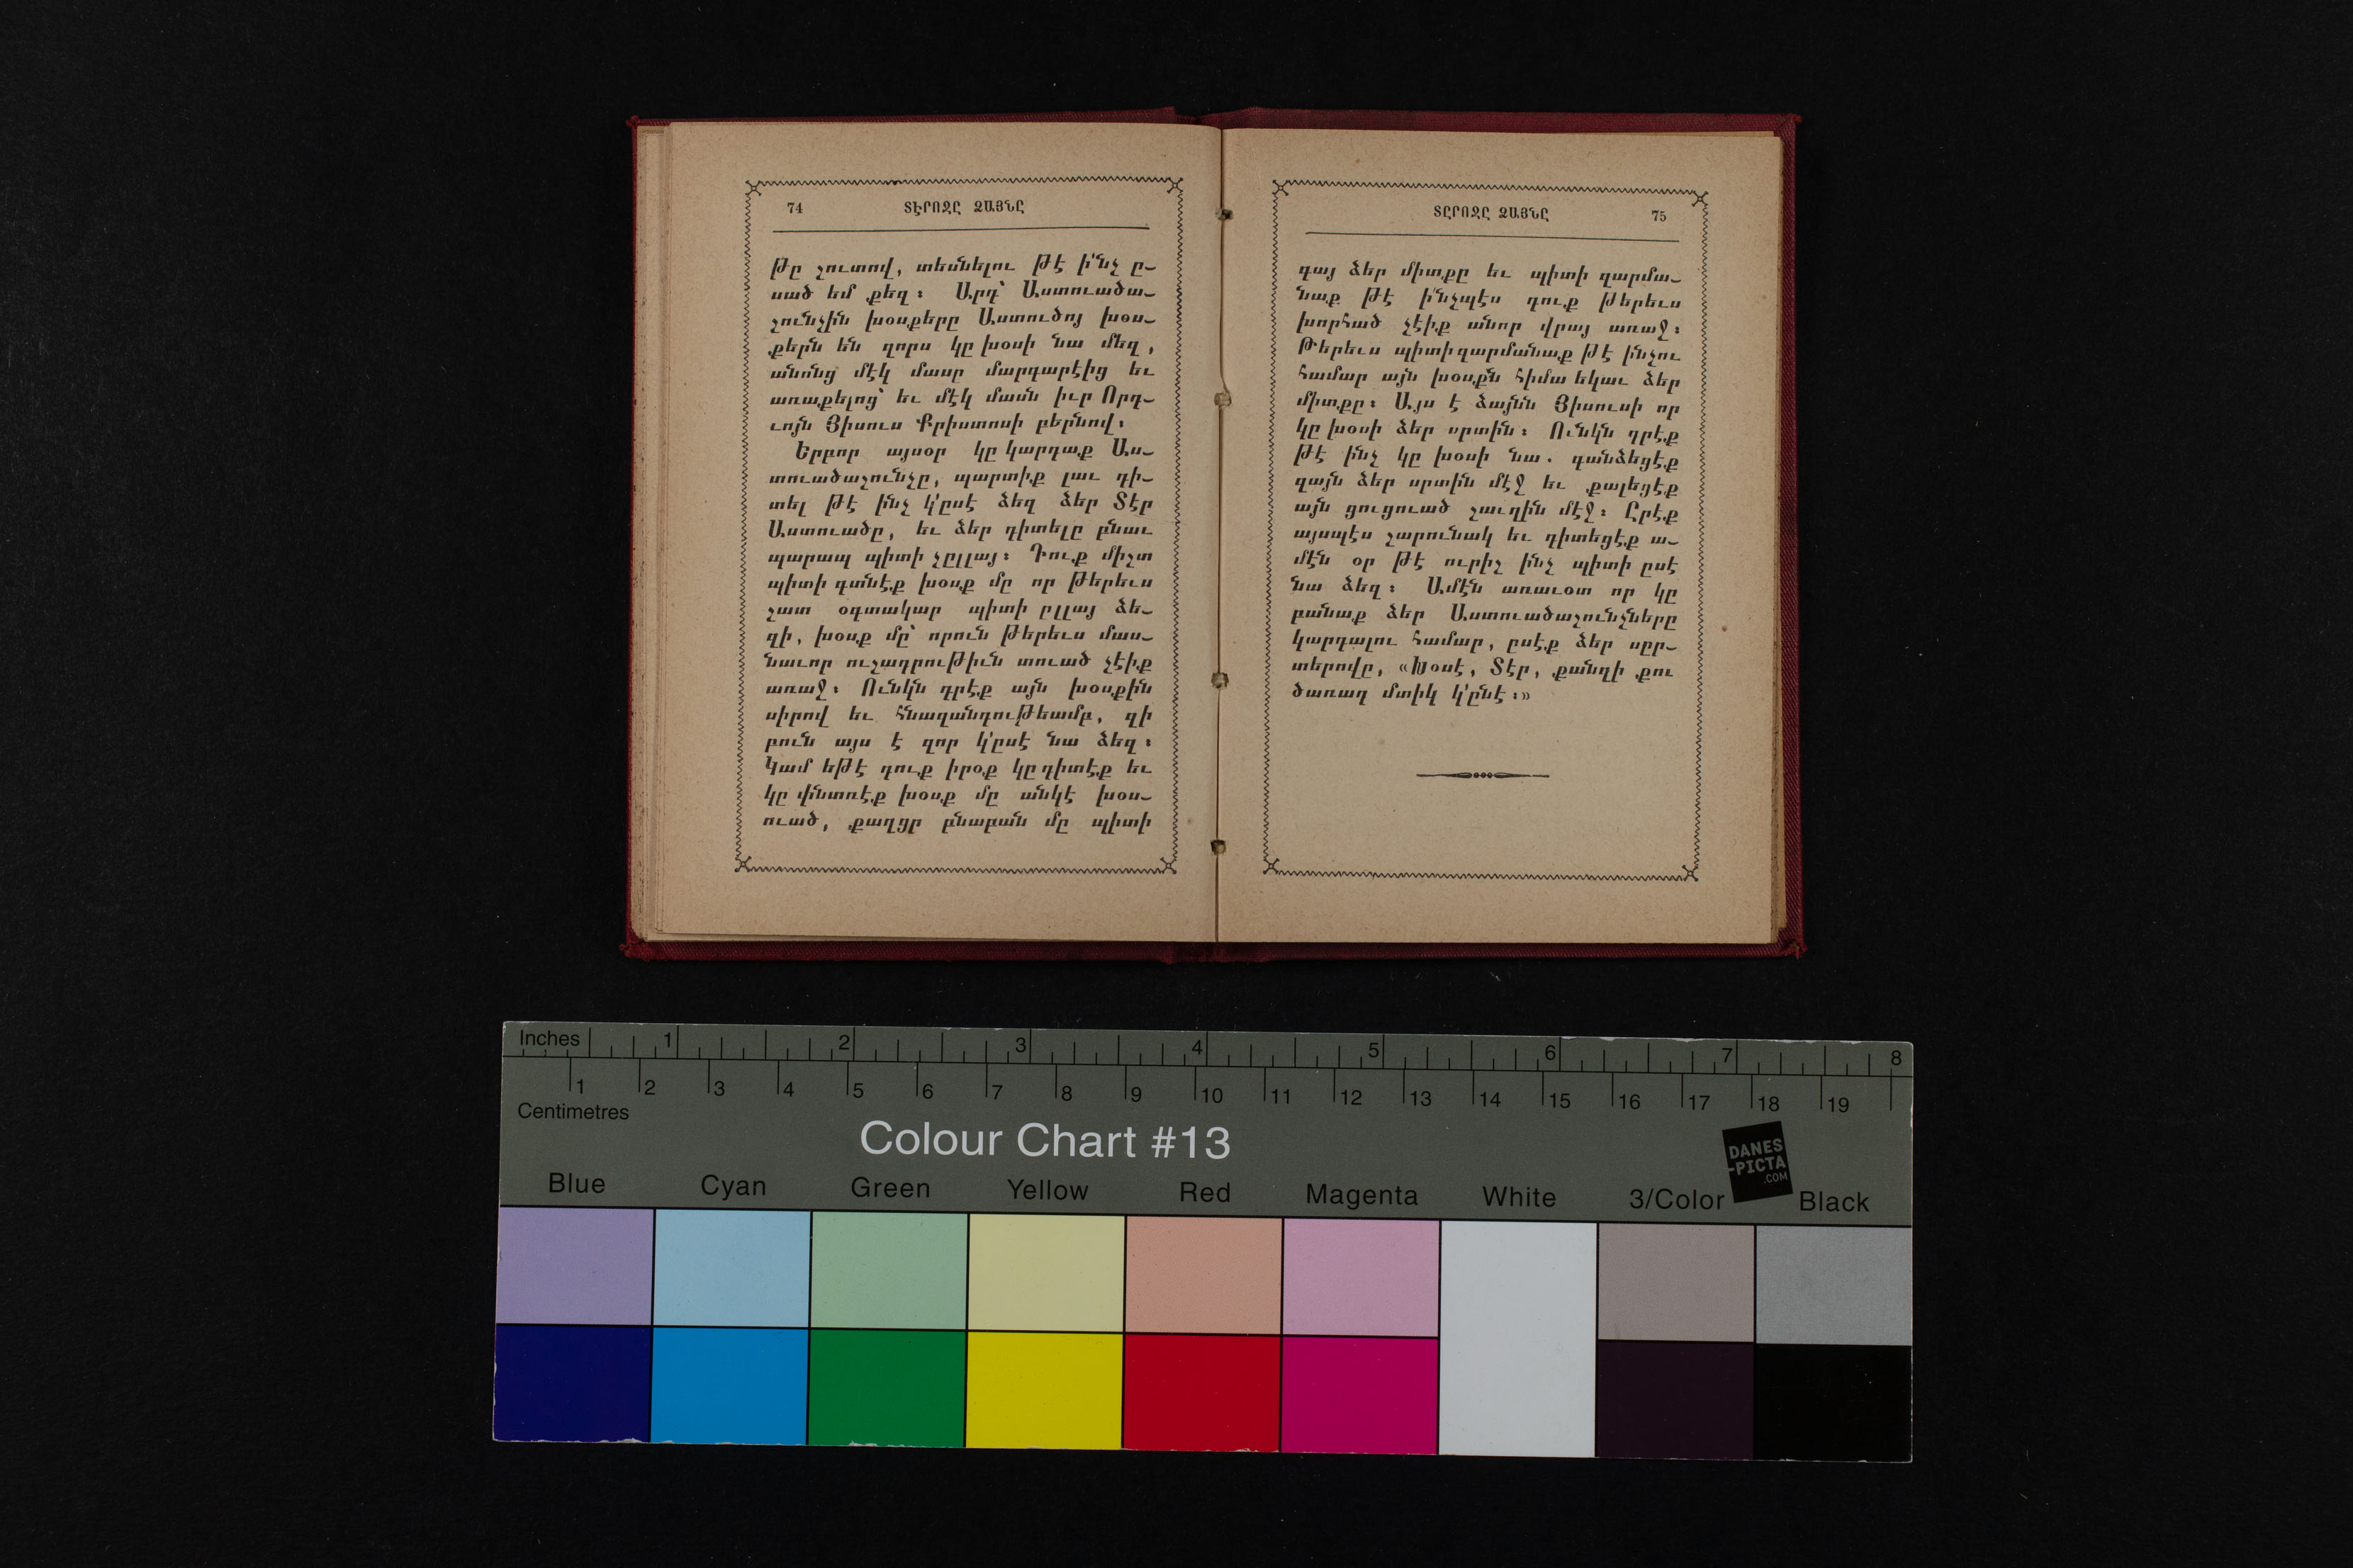 74 ՏԷՐՈՋԸ ՁԱՅՆԸ
թը շուտով, տեսնելու թէ ի՛նչ ը-
սած եմ քեզ։ Արդ՝ Աստուածա-
շունչին խօսքերը Աստուծոյ խօս-
քերն են զորս կը խօսի նա մեզ,
անոնց մէկ մասը մարդարէից եւ
առաքելոց՝ եւ մէկ մասն իւր Որդ-
ւոյն Յիսուս Քրիստոսի բերնով։
Երբոր այսօր կը կարդաք Աս-
տուածաշունչը, պարտիք լաւ դի-
տել թէ ինչ կ՚ըսէ ձեզ ձեր Տէր
Աստուածը, եւ ձեր դիտելը բնաւ
պարապ պիտի չըլլայ։ Դուք միշտ
պիտի գտնէք խօսք մը որ թերեւս
շատ օգտակար պիտի ըլլայ ձե-
զի, խօսք մը՝ որուն թերեւս մաս-
նաւոր ուշադրութիւն տուած չէիք
առաջ։ Ունկն դրէք այն խօսքին
սիրով եւ հնազանդութեամբ, զի
բուն այս է զոր կ՚ըսէ նա ձեզ։
Կամ եթէ դուք իրօք կը դիտէք եւ
կը փնտռէք խօսք մը անկէ խօս-
ուած, քաղցր բնաբան մը պիտի
ՏԸՐՈՋԸ ՁԱՅՆԸ 75
գայ ձեր միտքը եւ պիտի զարմա-
նաք թէ ի՛նչպէս դուք թերեւս
խորհած չէիք անոր վրայ առաջ։
Թերեւս պիտի զարմանաք թէ ինչու
համար այն խօսքն հիմա եկաւ ձեր
միտքը։ Այս է ձայնն Յիսուսի որ
կը խօսի ձեր սրտին։ Ունկն դրէք
թէ ինչ կը խօսի նա. գանձեցէք
զայն ձեր սրտին մէջ եւ քալեցէք
այն ցուցուած շաւղին մէջ։ Ըրէք
այսպէս շարունակ եւ դիտեցէք ա-
մէն օր թէ ուրիշ ինչ պիտի ըսէ
նա ձեզ։ Ամէն առաւօտ որ կը
բանաք ձեր Աստուածաշունչները
կարդալու համար, ըսէք ձեր սըր-
տերովը, «Խօսէ, Տէր, քանզի քու
ծառադ մտիկ կ՚ընէ։»
Inches 1 2 3 4 5 6 7 8
1 2 3 4 5 6 7 8 9 10 11 12 13 14 15 16 17 18 19
Centimetres
Colour Chart #13
DANES
-PICTA
.COM
Blue Cyan Green Yellow Red Magenta White 3/Color Black